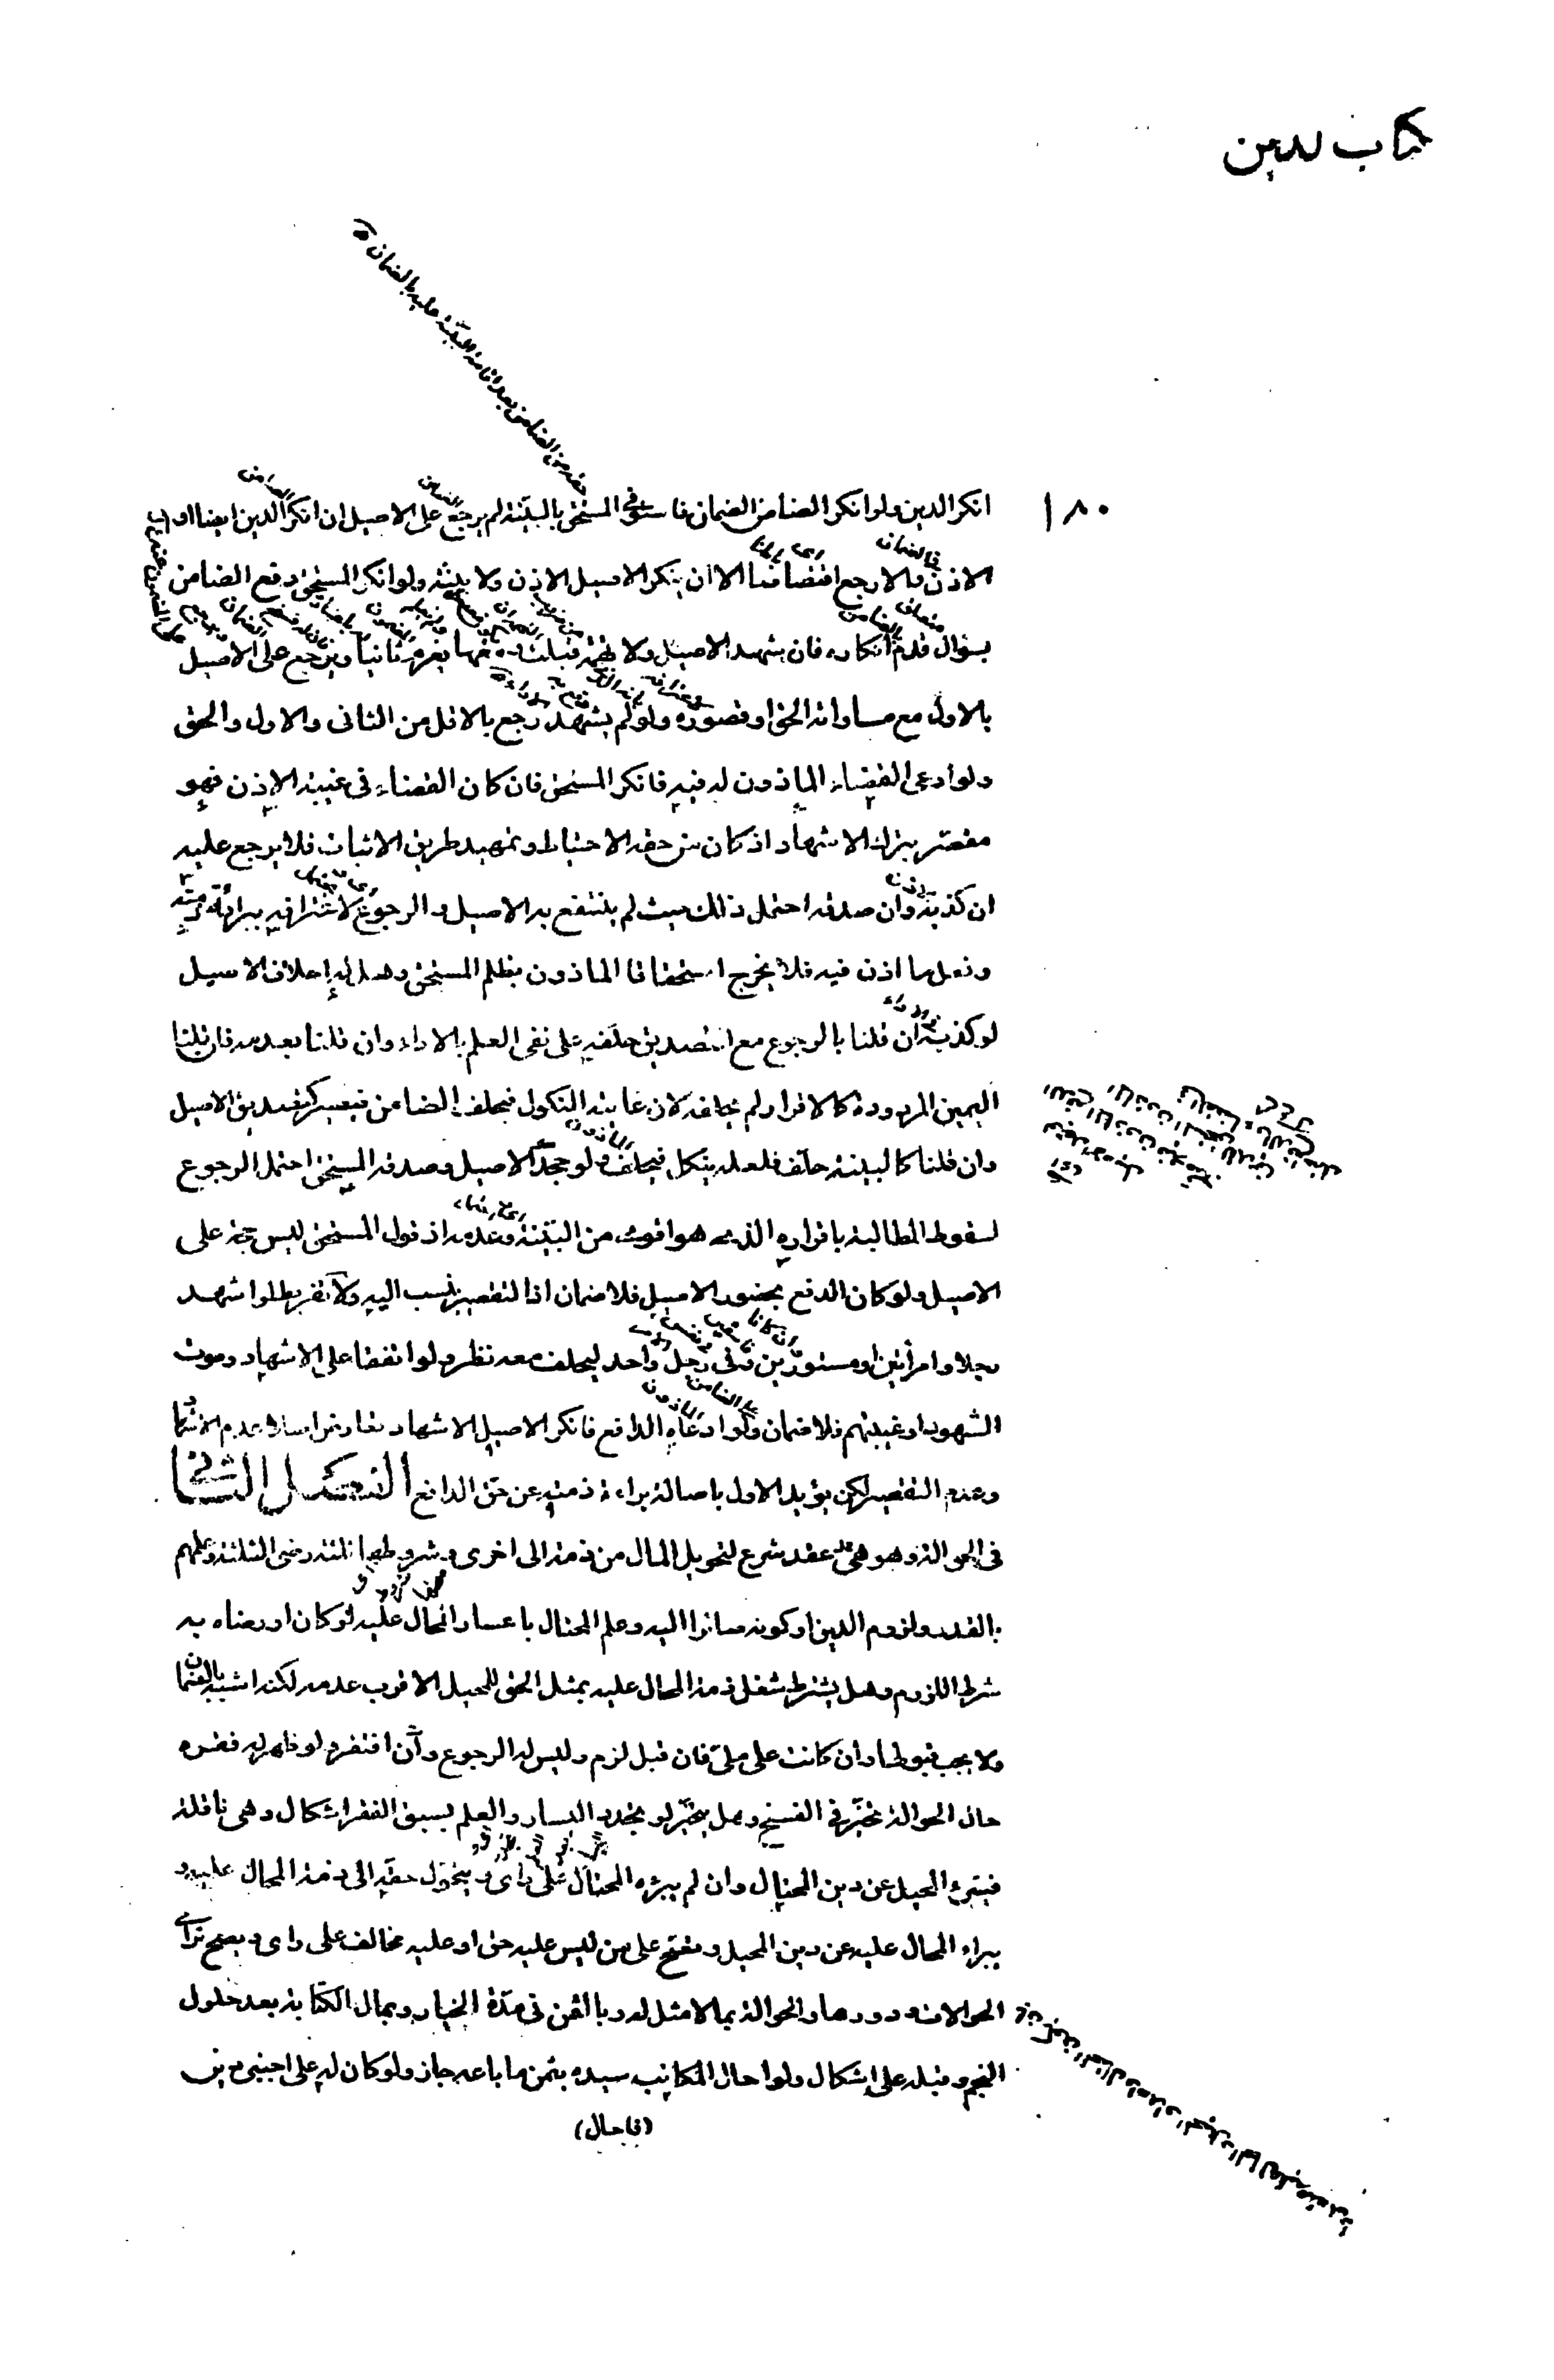 كتاب الدين
١٨٠
انكر الدين ولو انكر الضامن الضمان فاستوفى المستحق بالبينة لم يرجع على الاصيل ان انكر الدين ايضا او
الاذن والا رجع اقتصاصا الا ان ينكر الاصيل الاذن ولا بينة ولو انكر المستحق دفع الضامن
بسؤال قدم انكاره فان شهد الاصيل ولا تهمة قبلت ومعها يغرم ثانيا ويرجع على الاصيل
بالاول مع مساواته الحق او قصوره ولو لم يشهد رجع بالاقل من الثانى والاول والحق
ولو ادعى القضاء الماذون له فيه فانكر المستحق فان كان القضاء فى غيبة الاذن فهو
مقصر بترك الاشهاد اذ كان من حقه الاحتياط وتمهيد طريق الاثبات فلا يرجع عليه
ان كذبه وان صدقه احتمل ذلك حيث لم ينتفع به الاصيل والرجوع لاعترافه ببرائة ذمته
وفعل ما اذن فيه فلا يخرج استحقاقا الماذون بظلم المستحق وهل له احلاف الاصيل
لو كذبه ان قلنا بالرجوع مع التصديق حلفه على نفى العلم بالاداء وان قلنا بعدمه فان قلنا
اليمين المردودة كالاقرار لم يحلفه لان غايته النكول فيحلف الضامن فيصير كتصديق الاصيل
وان قلنا كالبينة حلف فلعله ينكل فيحلف ولو جحد الاصيل وصدقه المستحق احتمل الرجوع
لسقوط المطالبة باقراره الذى هو اقوى من البينة وعدمه اذ قول المستحق ليس حجة على
الاصيل ولو كان الدفع بحضور الاصيل فلا ضمان اذ التقصير ينسب اليه ولا تفريط لو اشهد
رجلا وامرأتين او مستورين وفى رجل واحد ليحلف معه نظر ولو اتفقا على الاشهاد وموت
الشهود او غيبتهم فلا ضمان ولو ادعاه الدافع فانكر الاصيل الاشهاد تعارض اصلا عدم الاشهاد
وعدم التقصير لكن يؤيد الاول باصالة براءة ذمته عن حق الدافع الفصل الثانى
فى الحوالة وهو هى عقد شرع لتحويل المال من ذمة الى اخرى وشروطها ثلثة رضى الثلثة وعلمهم
بالقدر ولزوم الدين او كونه صائرا اليه وعلم المحتال باعسار المحال عليه لو كان او رضاه به
شرط اللزوم وهل يشترط شغل ذمة المحال عليه بمثل الحق للمحيل الاقرب عدمه لكنه اشبه بالضمان
ولا يجب قبولها وان كانت على ملى فان قبل لزم وليس له الرجوع وان افتقر ولو ظهر له فقره
حال الحوالة تخير فى الفسخ وهل يتخير لو تجدد اليسار والعلم بسبق الفقر اشكال وهى ناقلة
فيبرئ المحيل عن دين المحتال وان لم يبرئه المحتال على راى ويتحول حقه الى ذمة المحال عليه و
يبراء المحال عليه عن دين المحيل وتصح على من ليس عليه حق او عليه مخالف على راى ويصح ترامى
الحوالات ودورها والحوالة بما لا مثل له وبالثمن فى مدة الخيار وبمال الكتابة بعد حلول
النجم وقبله على اشكال ولو احال المكاتب سيده بثمن ما باعه جاز ولو كان له على اجنبى دين
(فاحال)